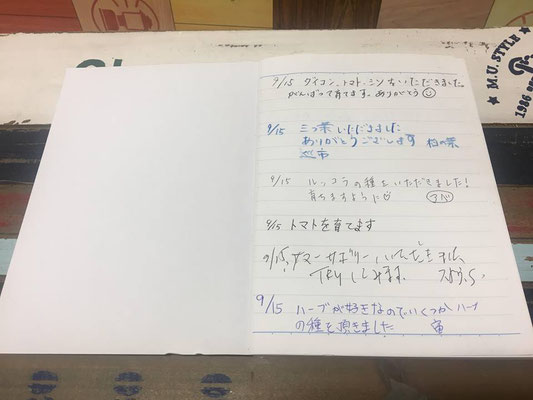 M.U. STYLE
1986
9/15 ダイコン、トマト、ミツバいただきました。
がんばって育てます。ありがとう
9/15 三つ葉いただきました
ありがとうございます 柏の葉
9/15 ルッコラの種をいただきました!
育ちますように
9/15 トマトを育てます
9/15 いただきました
TRYしてみます
9/15 ハーブが好きなのでいくつかハーブ
の種を頂きました